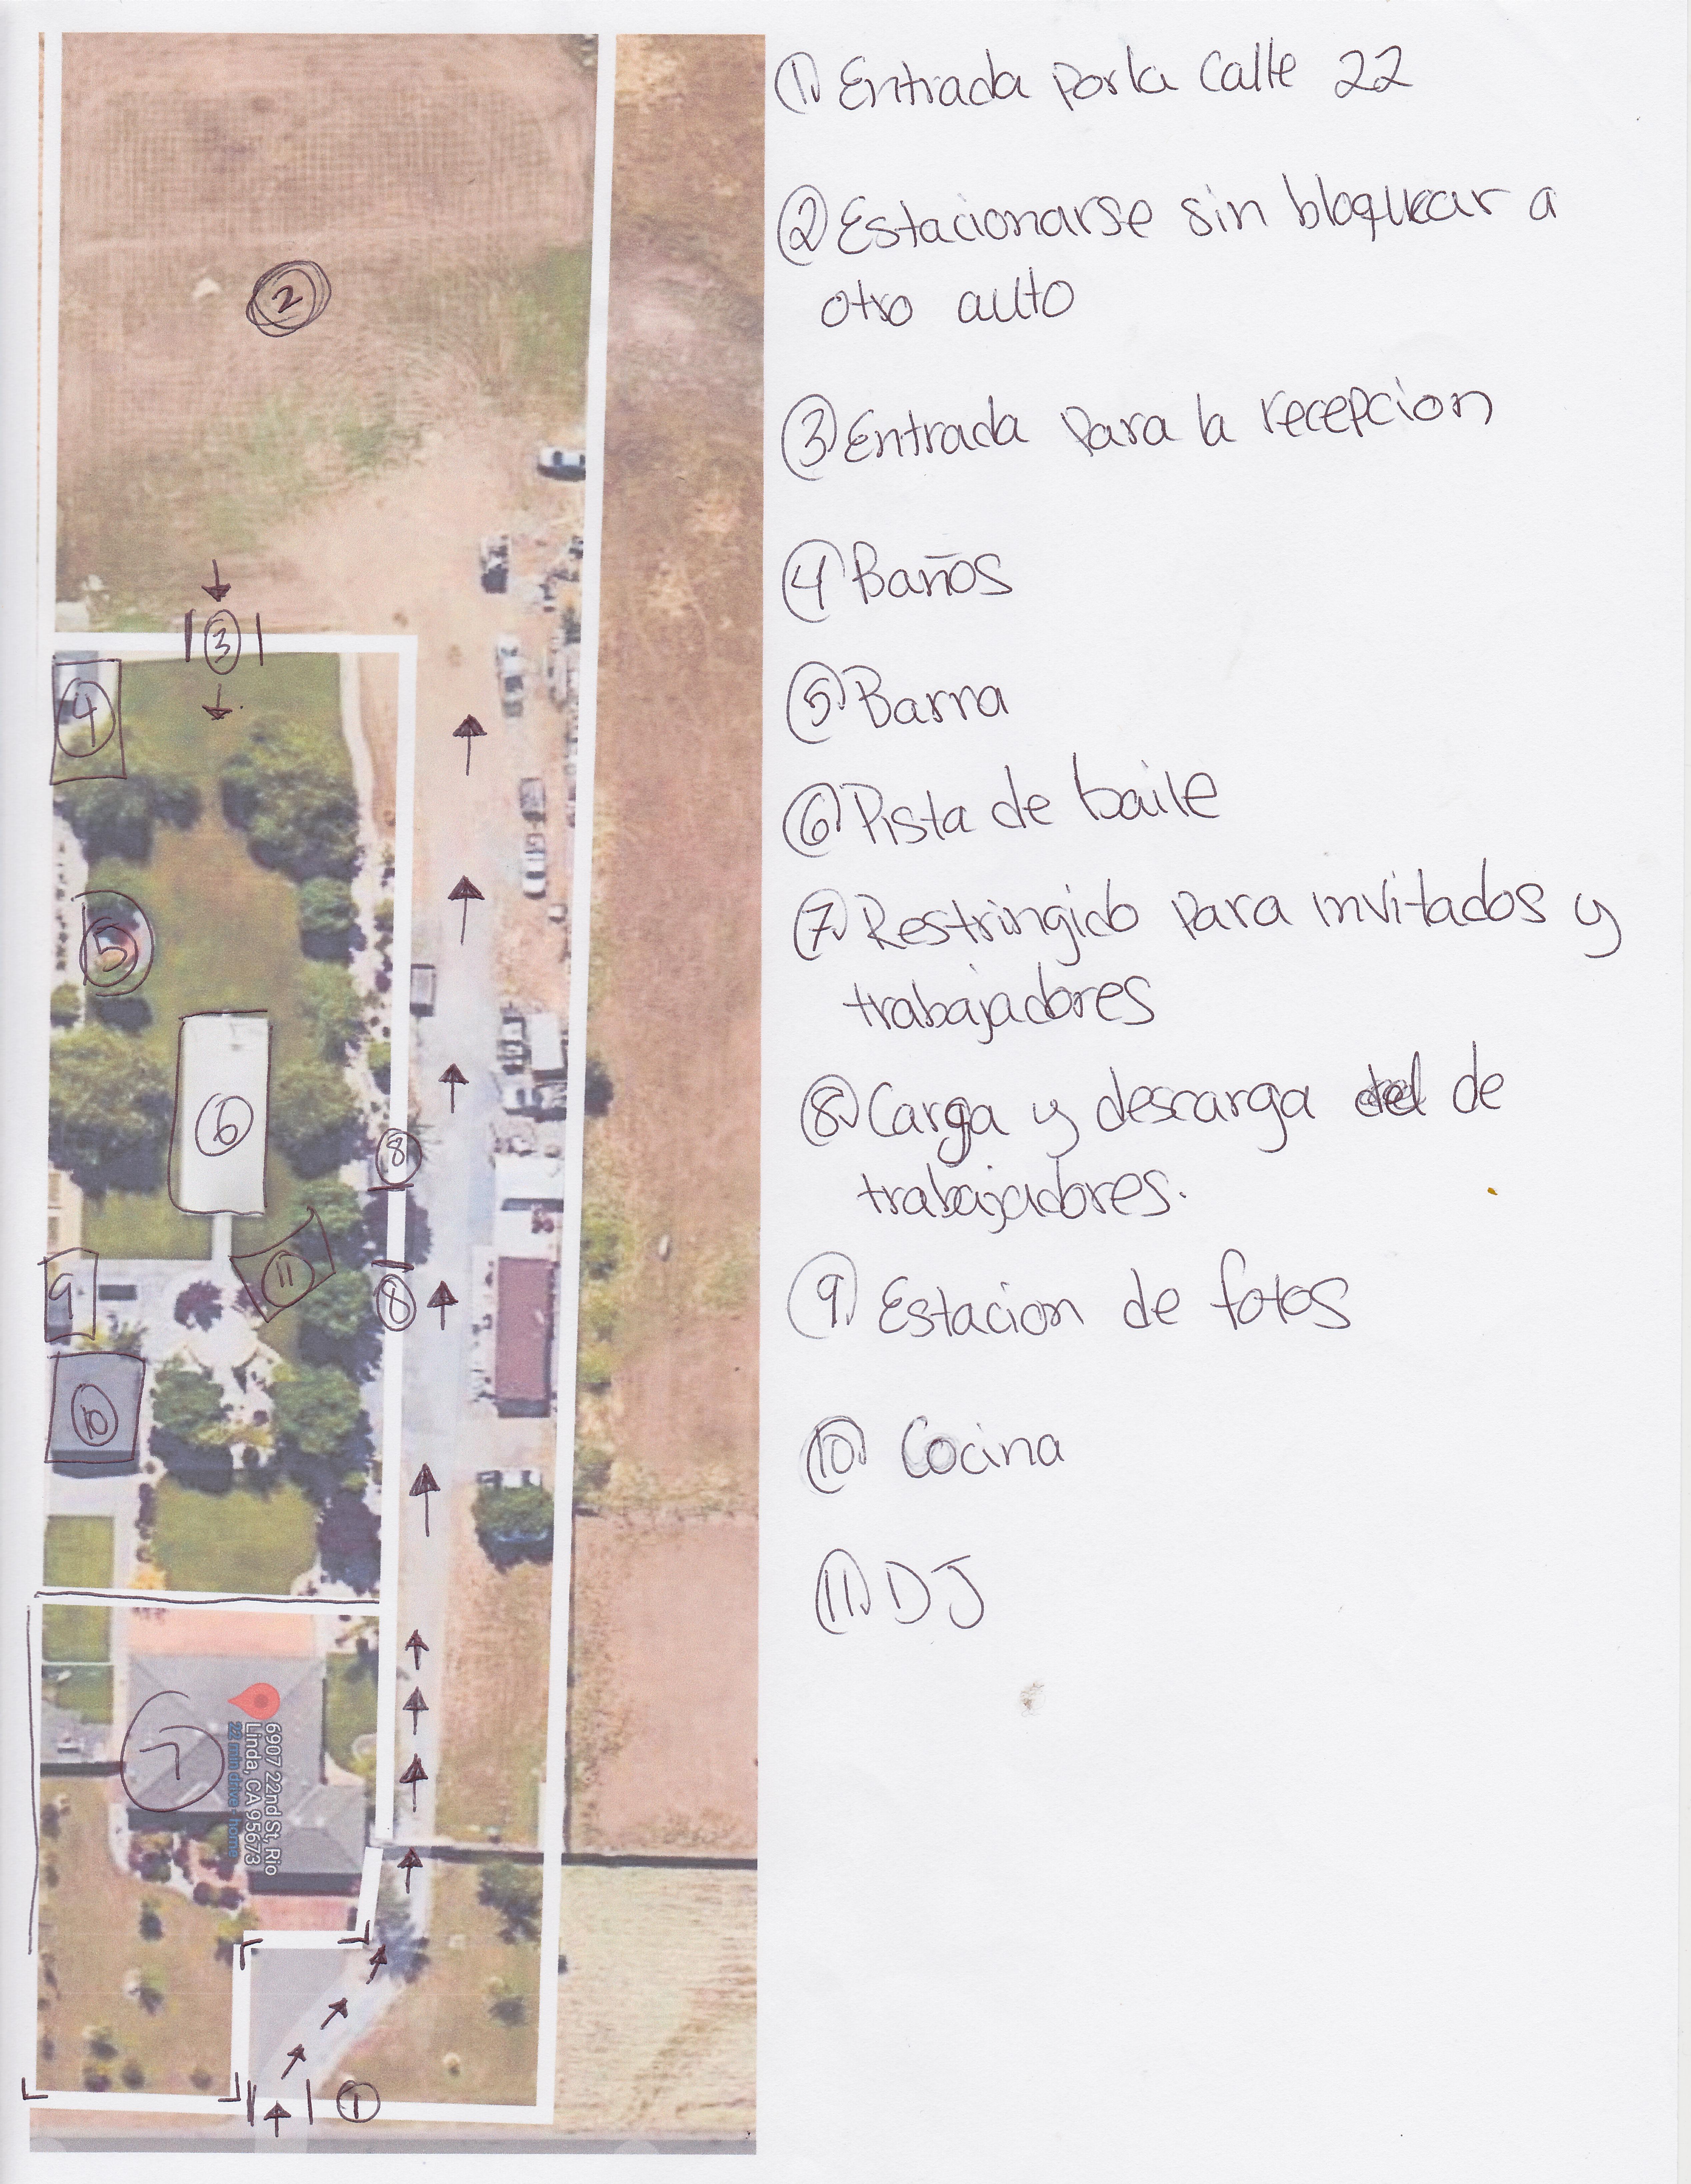 ① Entrada por la calle 22
② Estacionarse sin bloquear a
otro auto
③ Entrada para la recepcion
④ Baños
⑤ Barra
⑥ Pista de baile
⑦ Restringido para invitados y
trabajadores
⑧ Carga y descarga del de
trabajadores.
⑨ Estacion de fotos
⑩ Cocina
⑪ DJ
2
3
4
5
6
8
11
9
8
10
7
6907 22nd St, Rio
Linda, CA 95673
22 min drive - home
1